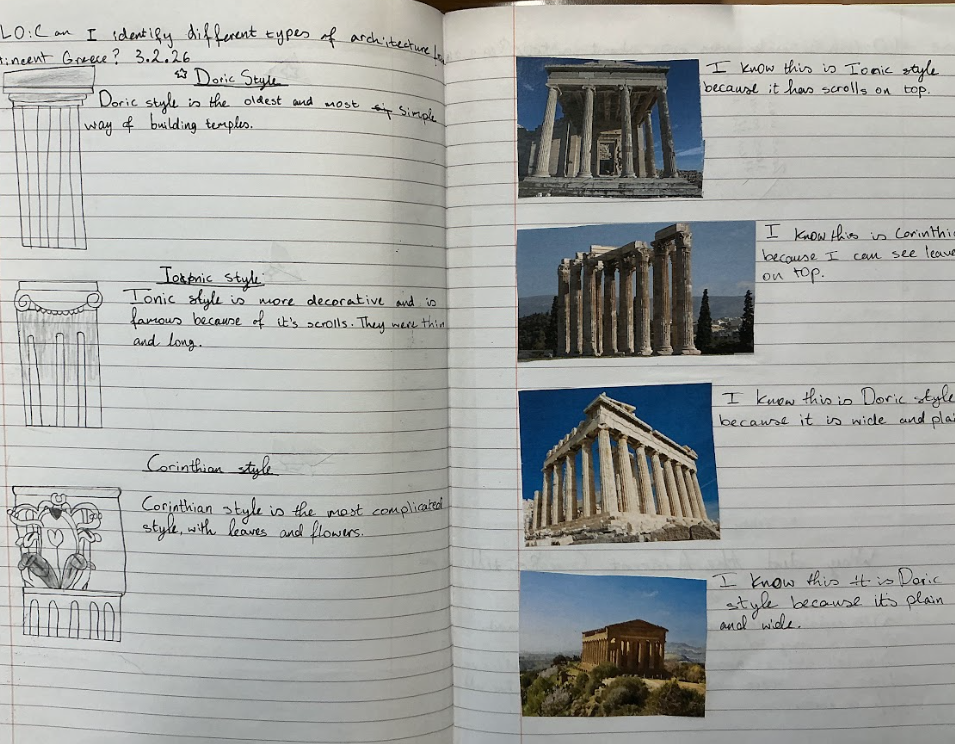 LO: Can I identify different types of architecture
Greece? 3.2.26
☆ Doric Style
Doric style is the oldest and most simple
way of building temples.
style
Ionic style is more decorative and is
famous because of it's scrolls. They were thin
and long.
Corinthian style
Corinthian style is the most complicated
style, with leaves and flowers.
I know this is Ionic style
because it has scrolls on top.
I know this is Corinthi
because I can see leave
on top.
I know this is Doric style
because it is wide and plai
I know this is Doric
style because it's plain
and wide.